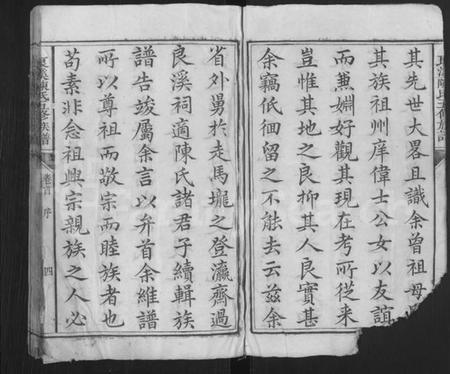 其先世大畧且識余曾祖母
其族祖州庠偉士公女以友誼
而兼婣好觀其現在考所從來
豈惟其地之良抑其人良實甚
余竊低徊留之不能去云茲余
省外舅於走馬壠之登瀛齋過
良溪祠適陳氏諸君子續輯族
譜告竣屬余言以弁首余維譜
所以尊祖而敬宗而睦族者也
苟素非念祖興宗親族之人必
良溪陳氏五修族譜
卷首 序
四